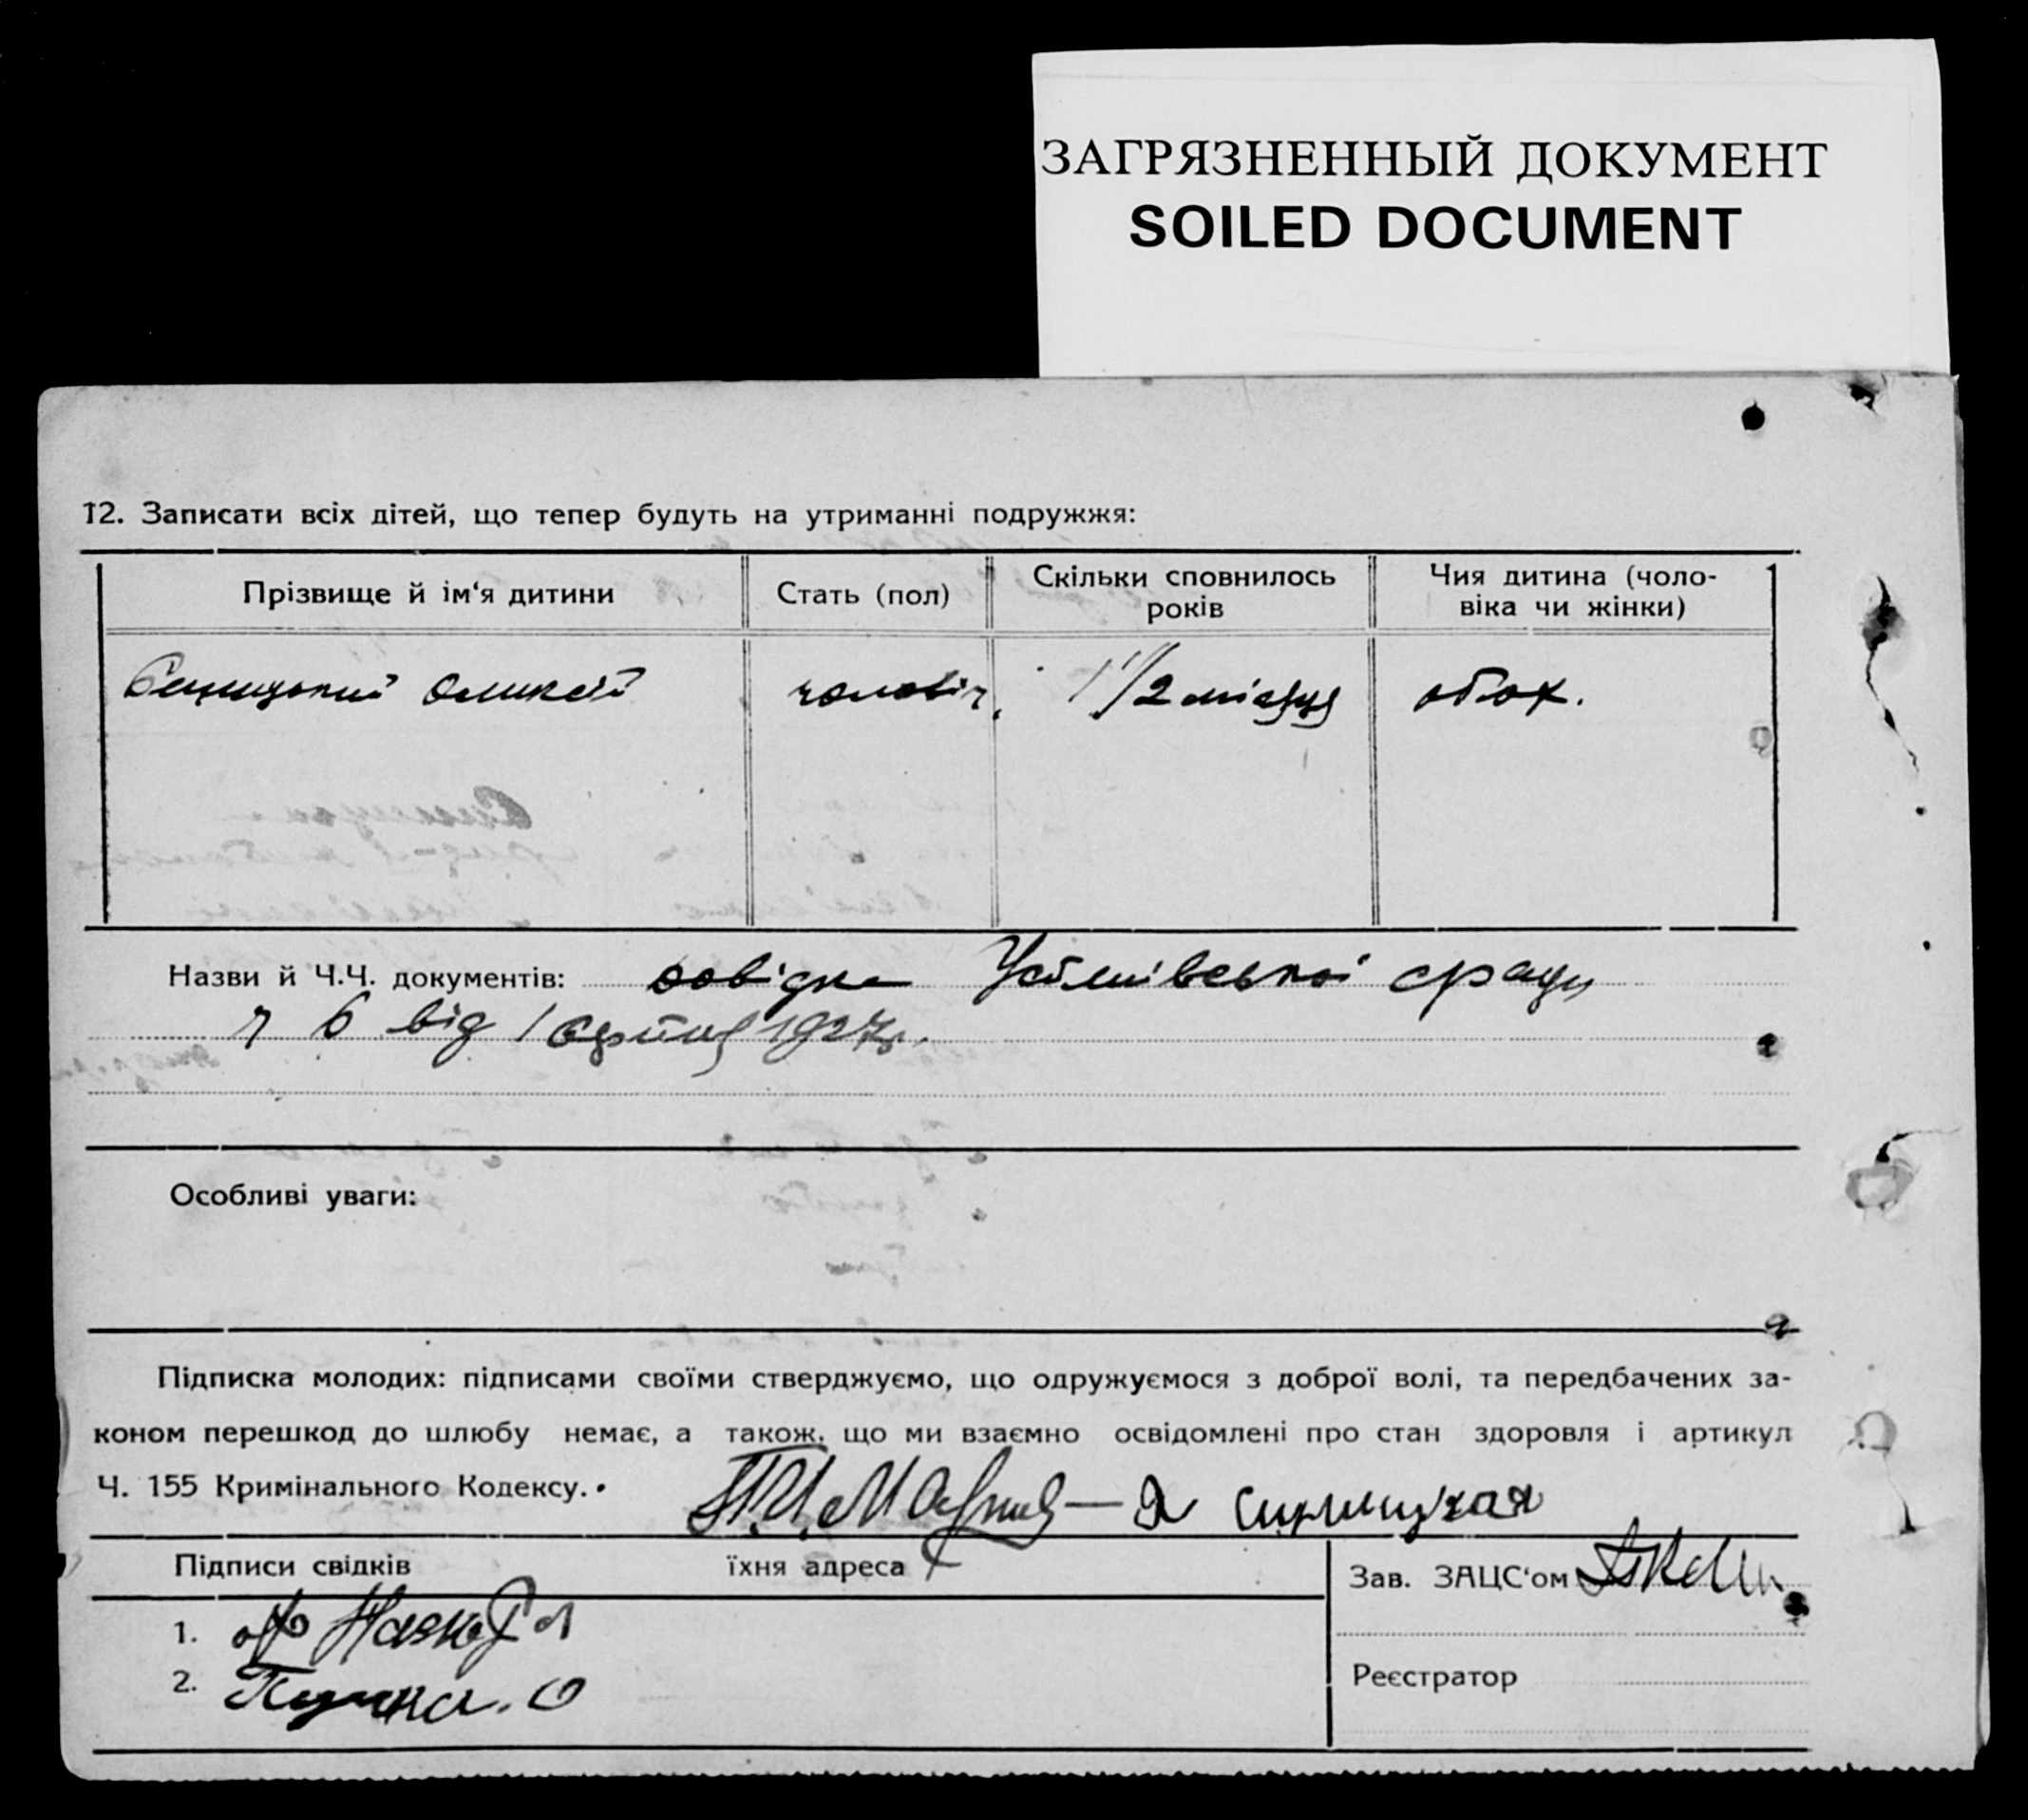 ЗАГРЯЗНЕННЫЙ ДОКУМЕНТ
SOILED DOCUMENT
12. Записати всіх дітей, що тепер будуть на утриманні подружжя:
Прізвище й ім'я дитини
Стать (пол)
Скільки сповнилось
років
Чия дитина (чоло-
віка чи жінки)
чоловіч. 1 1/2 місяця обох.
Назви й Ч.Ч. документів: довідка сради
ч 6 від 1 1927р.
Особливі уваги:
Підписка молодих: підписами своїми стверджуємо, що одружуємося з доброї волі, та передбачених за-
коном перешкод до шлюбу немає, а також, що ми взаємно освідомлені про стан здоровля і артикул
Ч. 155 Кримінального Кодексу.
Підписи свідків
їхня адреса
Зав. ЗАЦС'ом
1.
2.
Реєстратор